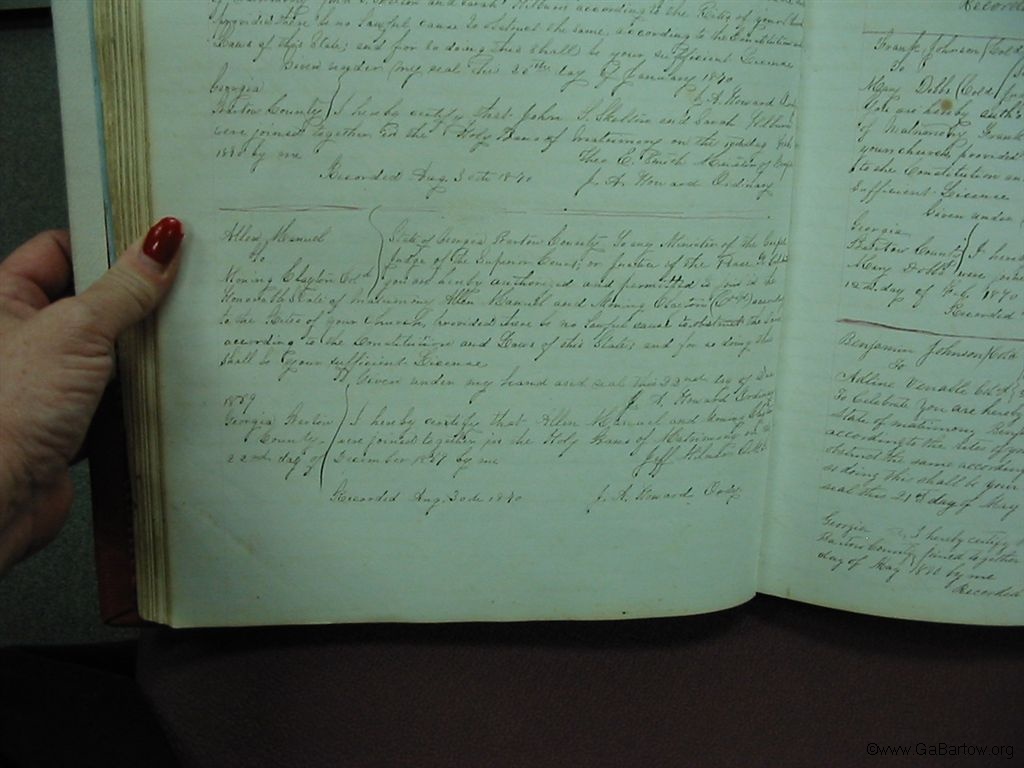 of Matrimony John S. Skelton and Sarah Wilburn according to the Rites of your Church
provided there be no lawful cause to obstruct the same, according to the Constitution and
Laws of this State; and for so doing this shall be your sufficient License
Given under my seal this 20th day of January 1870
J. A. Howard Ord
Georgia
Bartow County I hereby certify that John S. Skelton and Sarah Wilburn
were joined together in the Holy Bans of Matrimony on the
1870 by me Theo E. Smith Minister of
Recorded Aug. 30th 1870 J. A. Howard Ordinary
Allen Manuel
to
Moning Clayton Cold
State of Georgia Bartow County To any Minister of the Gospel
Judge of the Superior Court; or Justice of the Peace
you are hereby authorized and permitted to join in the
Honorable State of matrimony Allen Manuel and Moning Clayton (Cold) according
to the Rites of your Church, provided there be no lawful cause to obstruct the same
according to the Constitution and Laws of this State; and for so doing this
shall be your sufficient License
Given under my hand and seal this 22nd day of Dec
1869 J. A. Howard Ordinary
Georgia Bartow I hereby certify that Allen Manuel and Moning Clayton
County were joined together in the Holy Bans of Matrimony on
22nd day of December 1869 by me Jeff
Recorded Aug. 30th 1870 J. A. Howard Ordy
Recorded
Frank Johnson (Cold
to
Mary Dobbs (Cold
You are hereby auth
of Matrimony Frank
your church, provided
to the Constitution an
Sufficient License
Given under
Georgia
Bartow County I here
Mary Dobbs were joined
12th day of Feb. 1870
Recorded
Benjamin Johnson (Cold
To
Adline Venable Cold
To celebrate you are hereby
State of matrimony Benj
according to the rites of you
obstruct the same according
so doing this shall be your
seal this 21st day of May
Georgia I hereby certify
Bartow County joined together
day of May 1870 by me
Recorded
©www.GaBartow.org